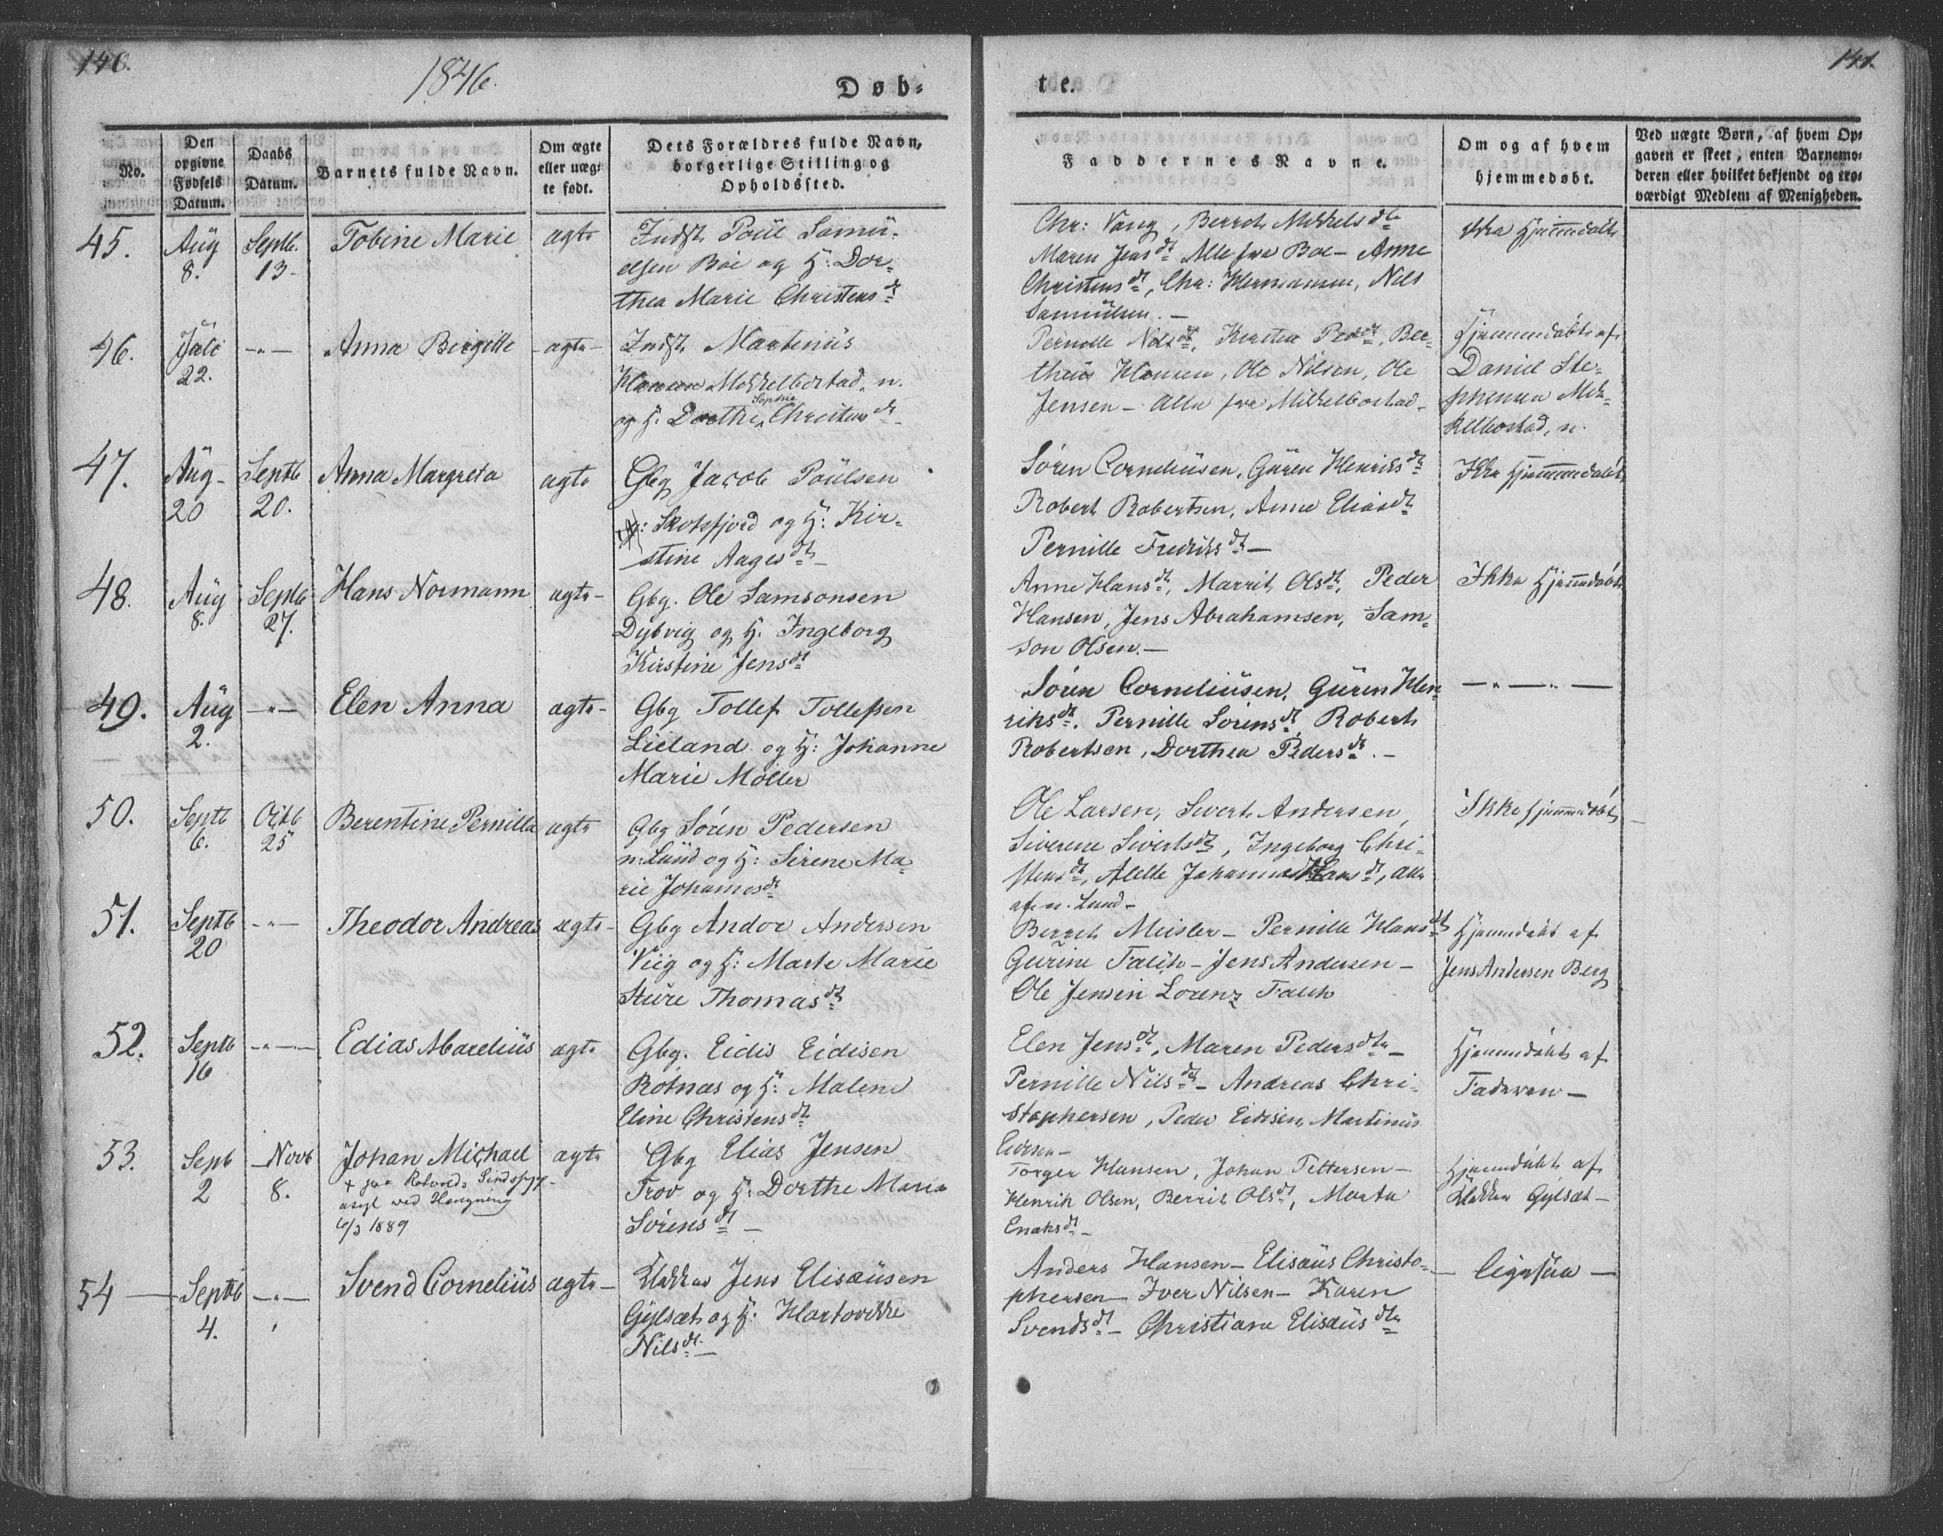 140.
1846.
Døb-
te.
141.
No.
Den opgivne Fødsels Datum.
Daabs Datum.
Barnets fulde Navn.
Om ægte eller uægte født.
Dets Forældres fulde Navn, borgerlige Stilling og Opholdssted.
Faddernes Navne.
Om og af hvem hjemmedøbt.
Ved uægte Børn, af hvem Opgaven er skeet, enten Barnemoderen eller hvilket bekjendt og troværdigt Medlem af Menigheden.
45.
Aug 8.
Septb 13
Tobine Marie
ægte
Indst Poul Samu-
elsen Böe og H: Dor-
thea Marie Christensdt
Chr: Vang, Berret Mikkelsdtr
Maren Jensdt Alle fra Boe - Anne
Christensdt, Chr: Hermansen, Nils
Samuelsen. -
ikke Hjemmedøbt
46.
Juli 22.
-"-
Anna Birgitte
ægte
Indst Martinus
Hansen Mikkelbostad, n.
og H. Dorthe Sophie Christensdt
Pernille Nilsdt, Kirsten Pedsdt, Ber-
theus Hansen, Ole Nilsen, Ole
Jensen - Alle fra Mikkelbostad
Hjemmedøbt af
Daniel Ste-
phensen Mik-
kelbostad, n.
47.
Aug 20
Septb 20.
Anna Margreta
ægte
Gbg Jacob Poulsen
Skotsfjord og H: Kir-
stine Aagesdt
Søren Corneliusen, Guren Henriksdt
Robert Robertsen, Anne Eliasdt
Pernille Fredriksdt -
Ikke Hjemmedøbt
48.
Aug 8.
Septb 27.
Hans Normann
ægte
Gbg. Ole Samsonsen
Dybvig og H. Ingeborg
Kirstine Jensdt
Anne Hansdt, Marrit Olsdt, Peder
Hansen, Jens Abrahamsen, Sam-
son Olsen. -
Ikke Hjemmedøbt
49.
Aug 2.
-"-
Elen Anna
ægte
Gbg Tollef Tollefsen
Lieland og H: Johanne
Marie Möller
Søren Corneliusen, Guren Hen-
riksdt. Pernille Sørensdt Robert
Robertsen, Dorthea Pedersdt. -
-"-"-
50.
Septb 6.
Octb 25
Berentine Pernilla
ægte
Gbg Søren Pedersen
n: Lund og H: Sirene Ma-
rie Johannesdt
Ole Larsen, Sivert Andersen,
Siverene Sivertsdt, Ingeborg Chri-
stensdt, Alette Johanna Hansdt, alle
af n. Lund -
Ikke hjemmedøbt
51.
Septb 20
-"-
Theodor Andreas
ægte
Gbg Andor Andersen
Viig og H: Marte Marie
Sture Thomasdt
Berret Meisler - Pernille Hansdt
Gurine Falch - Jens Andersen -
Ole Jensen Lorenz Falch
Hjemmdøbt af
Jens Andersen Berg
52.
Septb 16
-"-
Edias Marelius
ægte
Gbg. Eidis Eidisen
Rotnæs og H: Malene
Eline Christensdt
Elen Jensdt, Maren Pedersdtr -
Pernille Nilsdt - Andreas Chri-
stophersen, Peder Eidisen, Martinus
Eidisen -
Hjemmdøbt af
Faderen -
53.
Septb 2
Novb 8.
Johan Michael
+ paa Rotvolds Sindssyge-
asyl ved Hængning
6/3 1889
ægte
Gbg Elias Jensen
Trov og H: Dorthe Maria
Sørensdt -
Torger Hansen, Johan Pettersen -
Henrik Olsen, Berrit Olsdt, Marta
Enoksdt -
Hjemmdøbt af
Klokker Gylset -
54
Septb 4.
-"-
Svend Cornelius
ægte
Klokker Jens Elisæusen
Gylset og H: Hartovikke
Nilsdt -
Anders Hansen - Elisæus Christo-
phersen - Iver Nilsen - Karen
Svendsdt - Christiane Elisæusdtr
ligesaa -